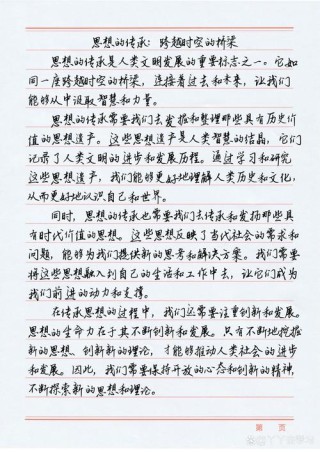 思想的传承：跨越时空的桥梁
思想的传承是人类文明发展的重要标志之一。它如
同一座跨越时空的桥梁，连接着过去和未来，让我们
能够从中汲取智慧和力量。
思想的传承需要我们去发掘和整理那些具有历史价
值的思想遗产。这些思想遗产是人类智慧的结晶，它们
记录了人类文明的进步和发展历程。通过学习和研究
这些思想遗产，我们能够更好地理解人类历史和文化，
从而更好地认识自己和世界。
同时，思想的传承也需要我们去传承和发扬那些具
有时代价值的思想。这些思想反映了当代社会的需求和
问题，能够为我们提供新的思考和解决方案。我们需要
将这些思想融入到自己的生活和工作中去，让它们成为
我们前进的动力和支撑。
在传承思想的过程中，我们还需要注重创新和发展。
思想的生命力在于其不断创新和发展。只有不断地挖掘
新的思想、创新新的理论，才能够推动人类社会的进步
和发展。因此，我们需要保持开放的心态和创新的精神，
不断探索新的思想和理论。
第 页